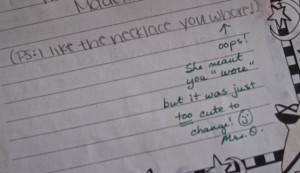 (PS: I like the necklace you whore!)
oops!
She meant
you "wore"
but it was just
too cute to
change!
Mrs. O.